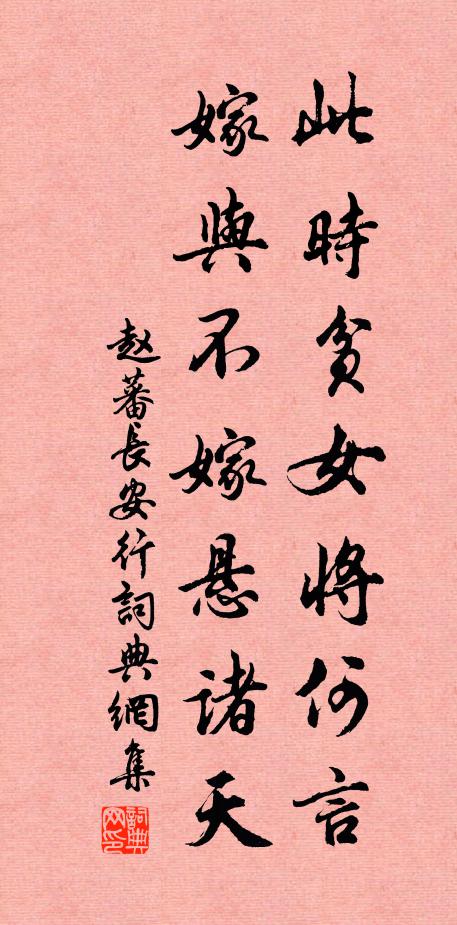 此時貧女將何言
嫁與不嫁悬諸天
赵蕃長安行詞典網集
詞典网印